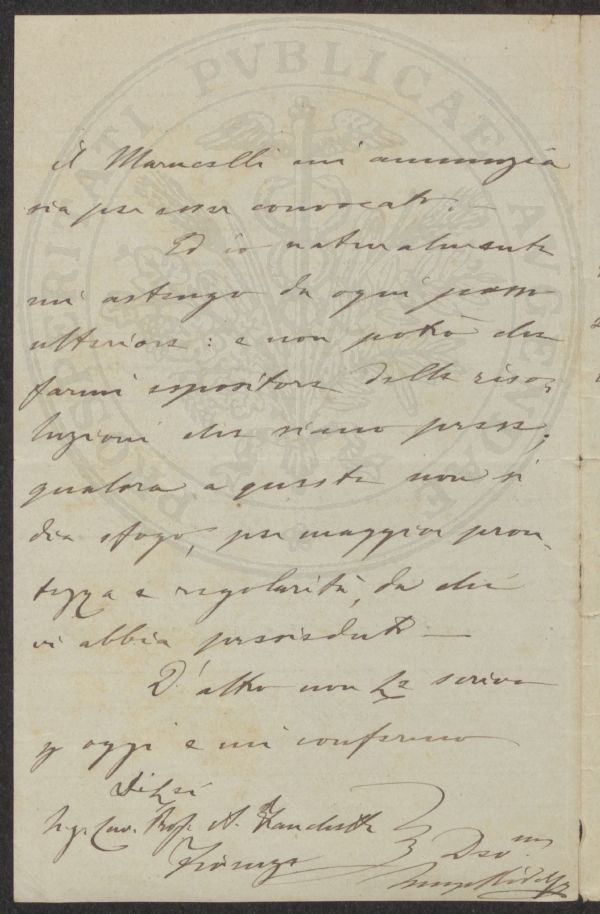 il Marucelli mi annunzia
sia per esser convocato. —
Ed io naturalmente
mi astengo da ogni passo
ulteriore: e non potrò che
farmi espositore delle riso-
luzioni che siano prese,
qualora a queste non si
dia sfogo, per maggior pron-
tezza e regolarità, da chi
vi abbia presieduto —
D'altro non Le scrivo
p oggi e mi confermo
Di Lei
Sigr Cav. Prof. A.
Firenze
Dev.mo
Ridolfi
PROSPERITATI PVBLICAE AVGENDAE